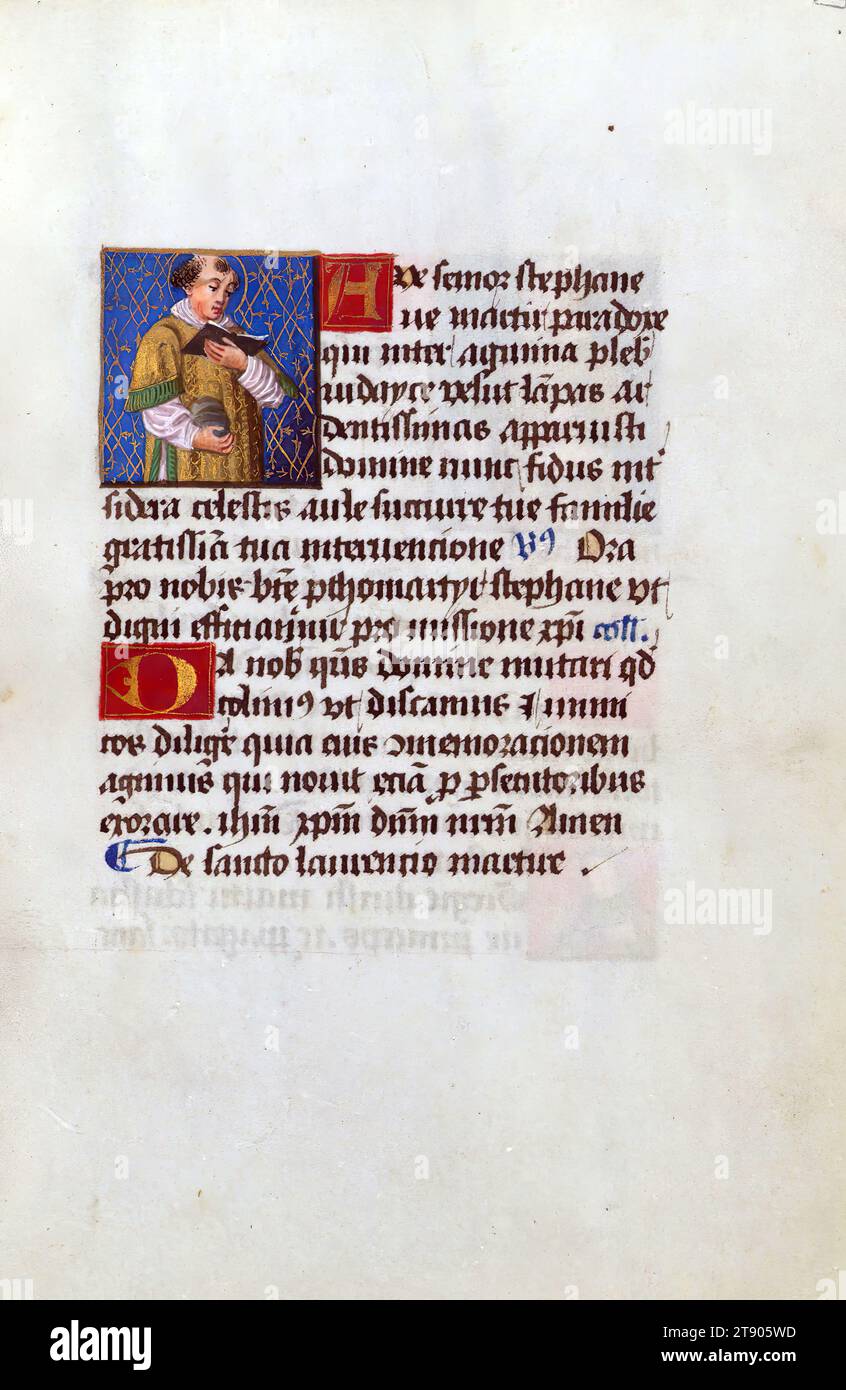 Ave semor stephane
aue martir paradoxe
qui inter agmina pleb
iudayce velut lāpas ar
dentissimas apparuisti
domine nunc fidus int
sidera celestis aule succurre tue familie
gratissīa tua interuencione Vꝰ Ora
pro nobis btē pthomartyr stephane vt
digni efficiamur pro missione xpi coll.
Da nob qūs domine mutari qd
colimꝰ vt discamus ⁊ inimi
cos diligē quia eius ꝯmemoracionem
agimus qui nouit eciā p psecutoribus
exorare. ihm̄ xpm̄ dn̄m nrm̄ Amen
De sancto laurencio martire .
alamy
Image ID: 2T905WD
www.alamy.com